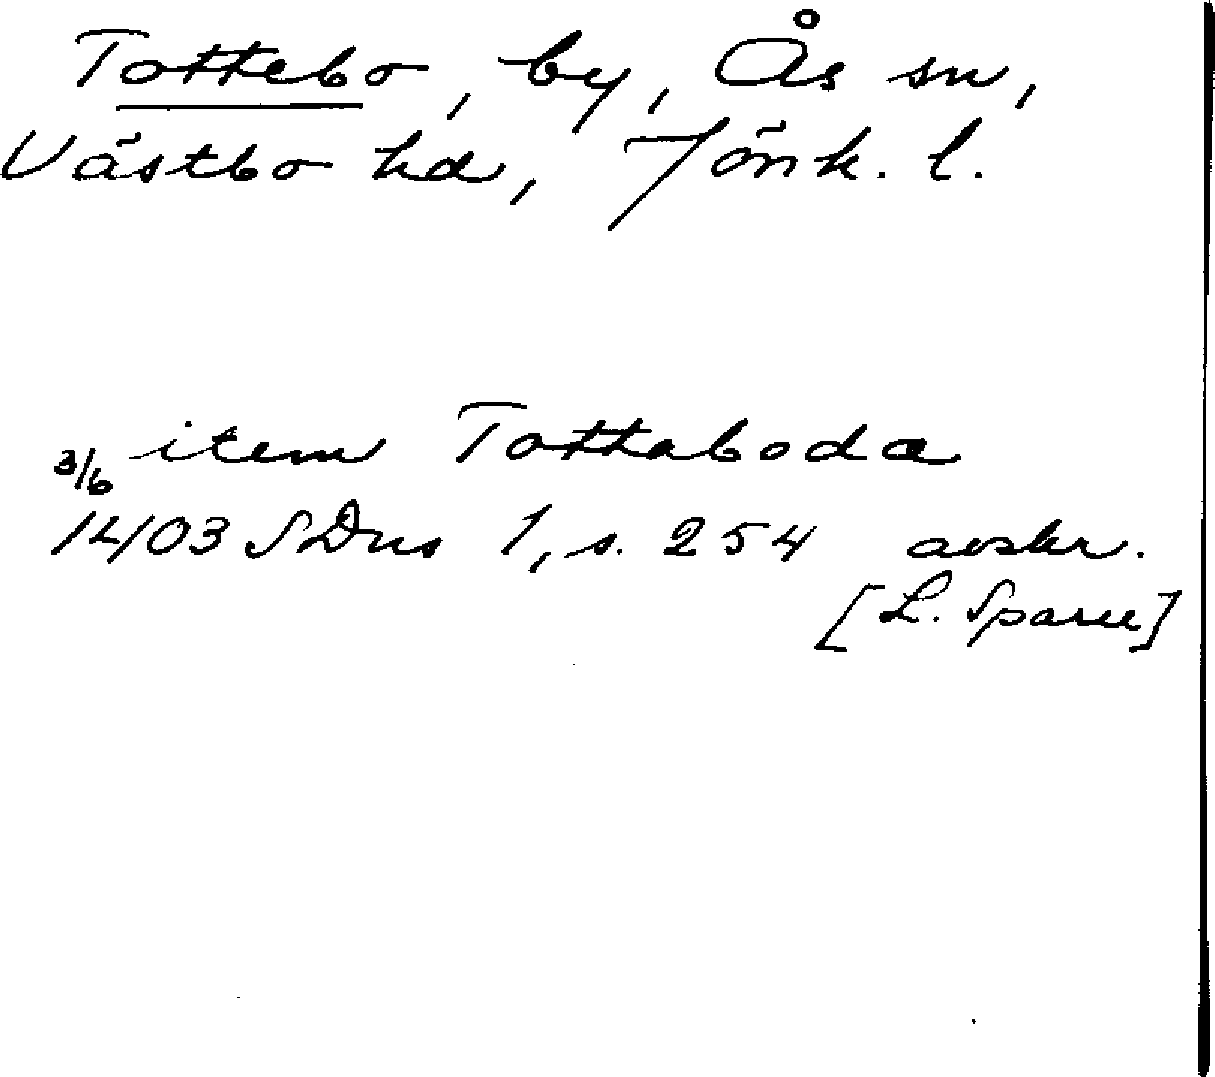 Tottebo, by, Ås sn,
Västbo hd, Jönk. l.
3/6 item Tottaboda
1403 SDns 1, s. 254 avskr.
[L. Sparre]